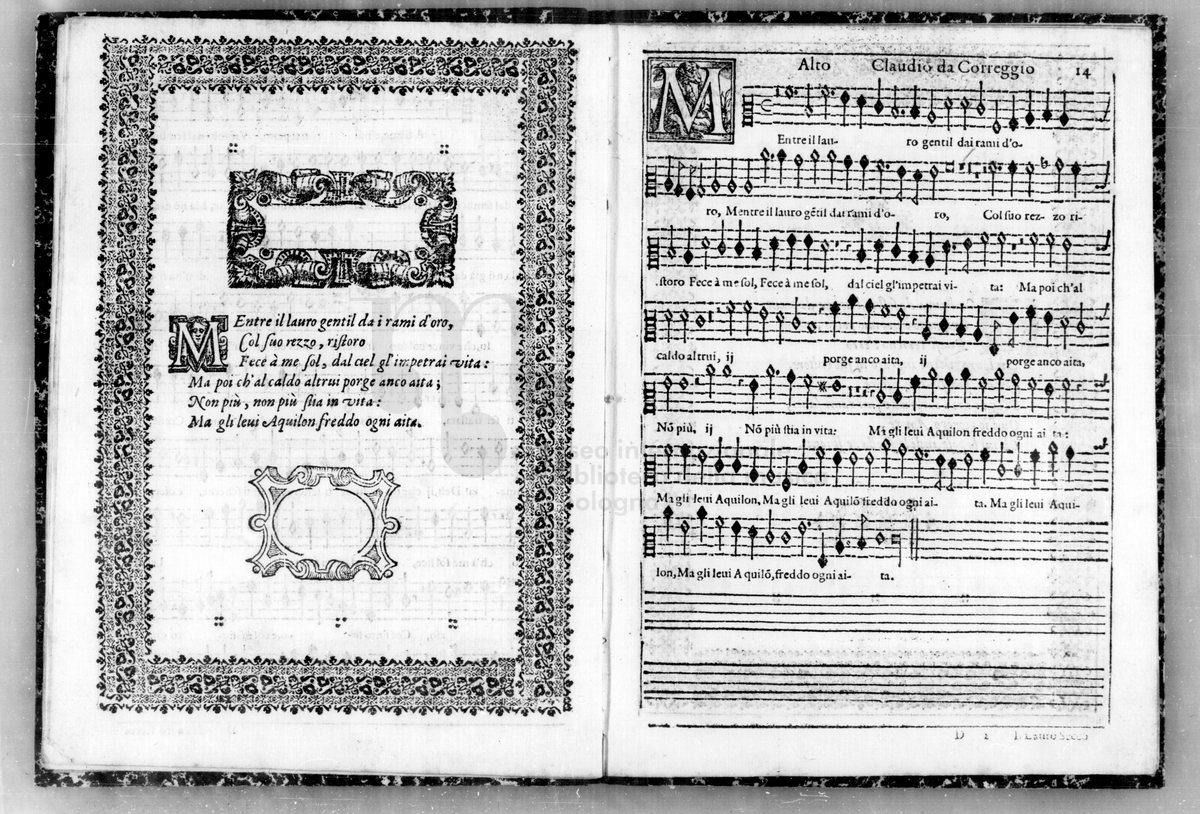 MEntre il lauro gentil da i rami d'oro,
Col suo rezzo, ristoro
Fece à me sol, dal ciel gl'impetrai vita:
Ma poi ch'al caldo altrui porge anco aita;
Non più, non più stia in vita:
Ma gli leui Aquilon freddo ogni aita.
Alto Claudio da Correggio 14
MEntre il lau- ro gentil dai rami d'o-
ro, Mentre il lauro gẽtil dai rami d'o- ro, Col suo rez- zo ri-
storo Fece à me sol, Fece à me sol, dal ciel gl'impetrai vi- ta: Ma poi ch'al
caldo altrui, ij porge anco aita, ij porge anco aita,
Nõ più, ij Nõ più stia in vita: Ma gli leui Aquilon freddo ogni ai ta:
Ma gli leui Aquilon, Ma gli leui Aquilõ freddo ogni ai- ta. Ma gli leui Aqui-
lon, Ma gli leui Aquilõ, freddo ogni ai- ta.
D 2 Il Lauro Secco